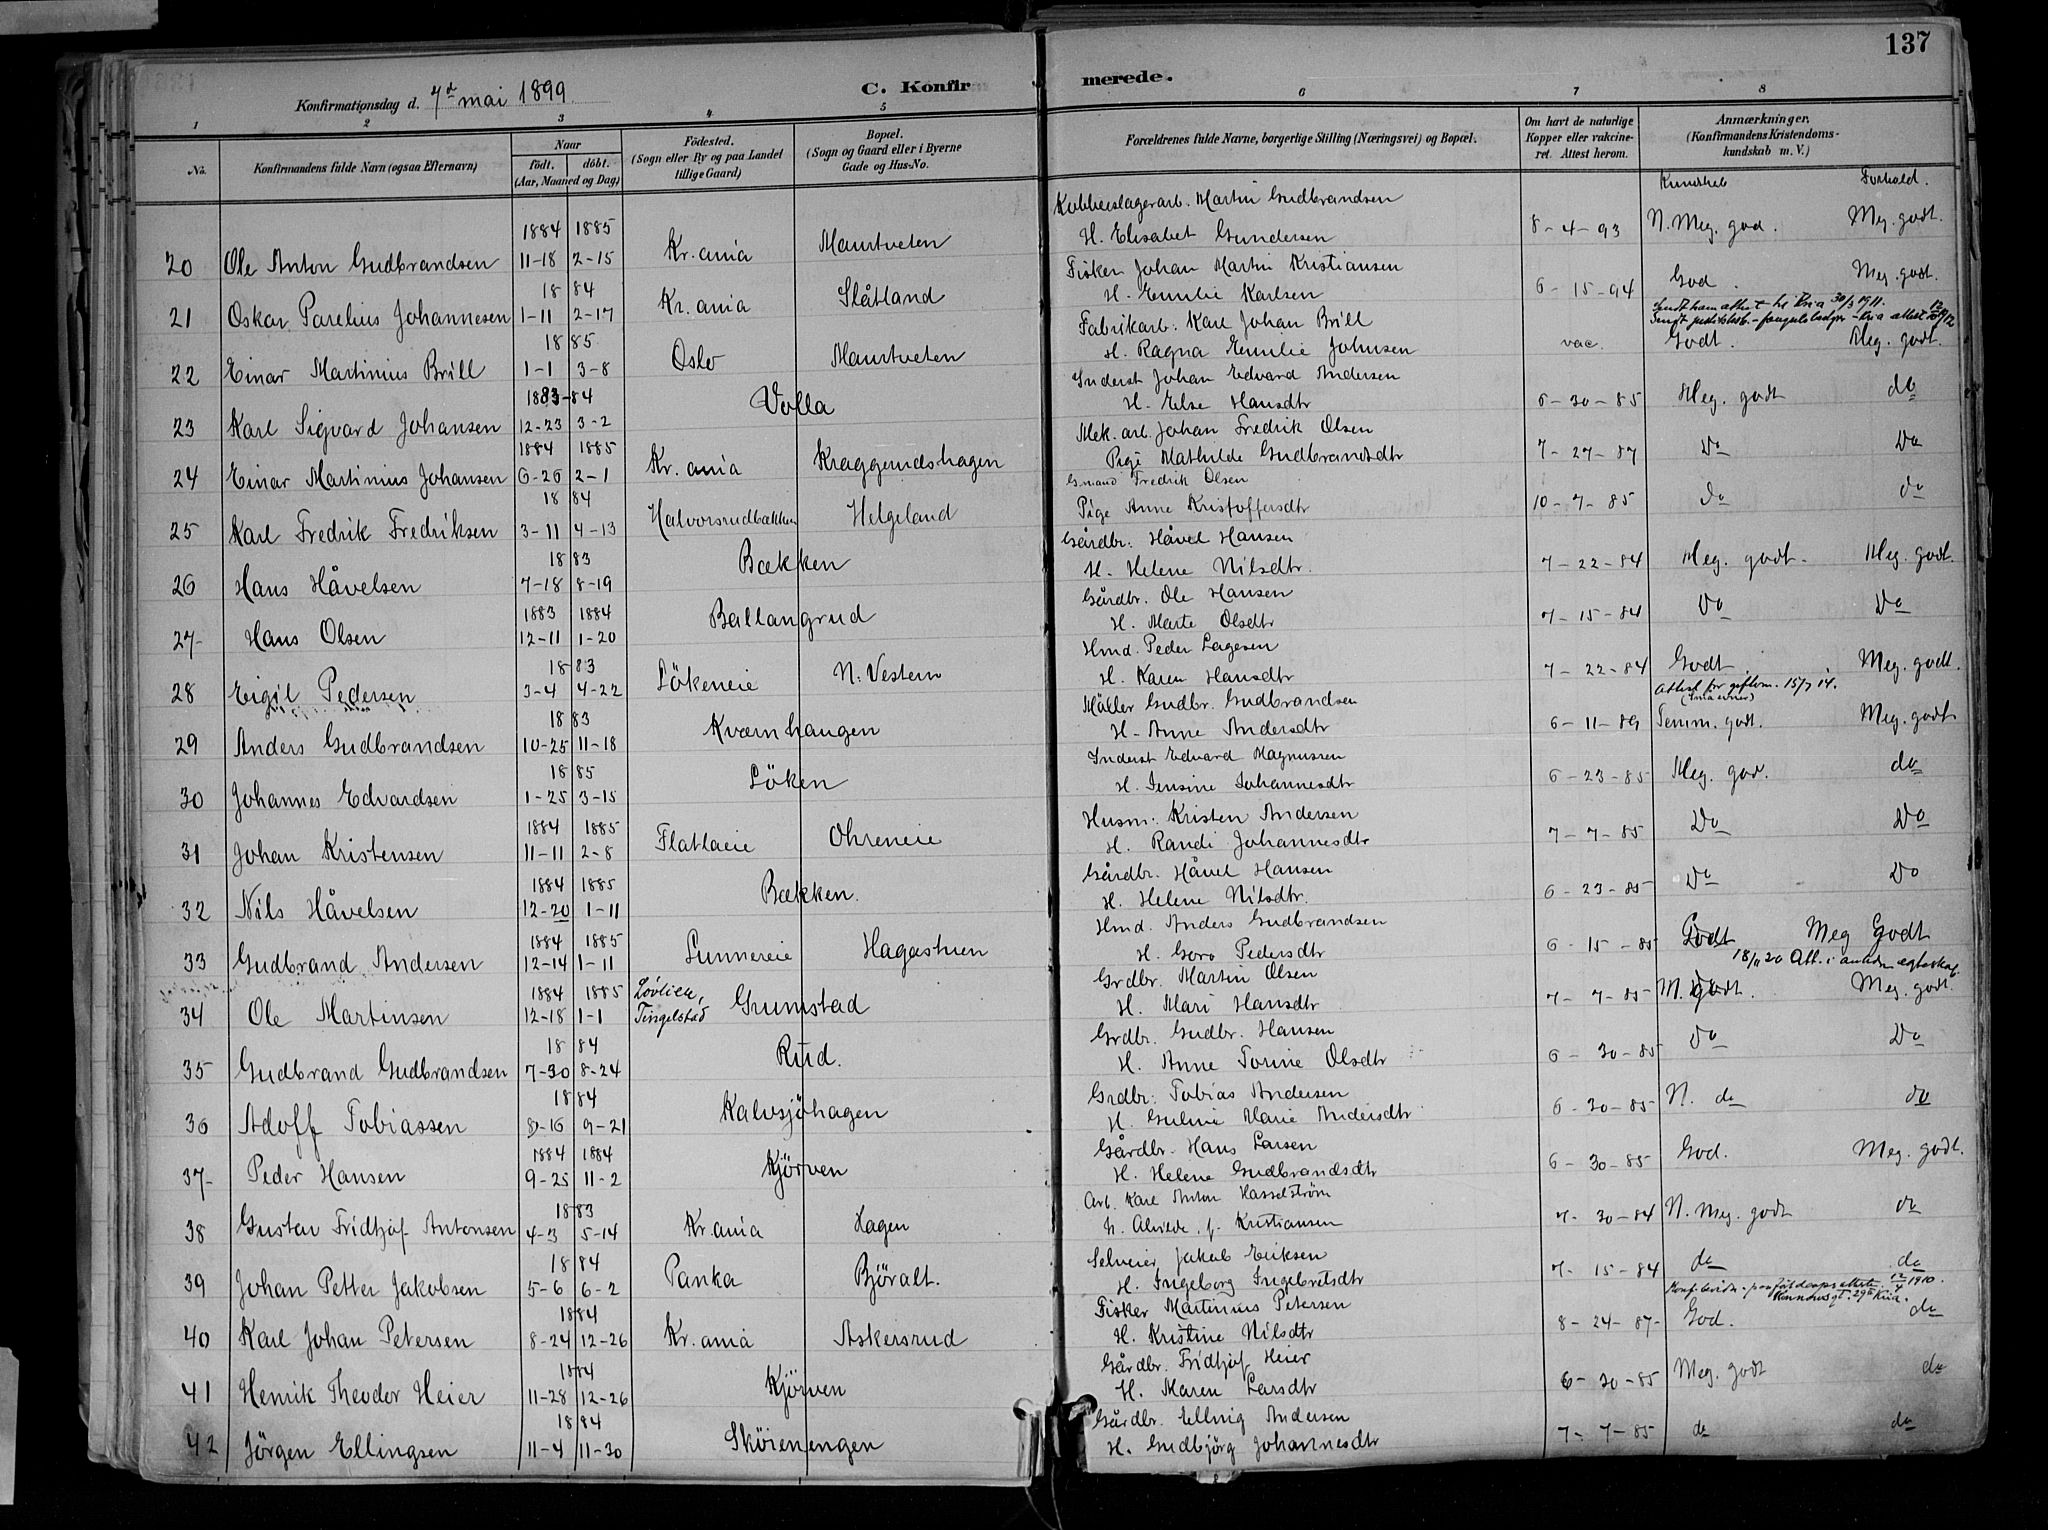 137
Konfirmationsdag d. 7de mai 1899
C. Konfirmerede.
1 2 3 4 5 6 7 8
No. Konfirmandens fulde Navn (ogsaa Efternavn) Naar født. døbt. (Aar, Maaned og Dag) Fødested. (Sogn eller By og paa Landet tillige Gaard) Bopæl. (Sogn og Gaard eller i Byerne Gade og Hus-No. Forældrenes fulde Navne, borgerlige Stilling (Næringsvei) og Bopæl. Om havt de naturlige Kopper eller vakcineret. Attest herom. Anmærkninger. (Konfirmandens Kristendomskundskab m. V.)
Kundskab Forhold.
Kobberslagerarb. Martin Gudbrandsen
1884 1885
20 Ole Anton Gudbrandsen 11-18 2-15 Kr.ania Maurtveten H. Elisabet Gundersen 8-4-93 N. Meg. god. Meg. godt.
Fisker Johan Martin Kristiansen
1884
21 Oskar Parelius Johannesen 1-11 2-17 Kr.ania Slåtland H. Emilie Karlsen 6-15-94 God. Meg. godt.
Fabrikarb. Karl Johan Brill
1885
22 Einar Martinius Brill 1-1 3-8 Oslo Maurtveten H. Ragna Emilie Johnsen vac. Godt. Meg. godt.
Inderst Johan Edvard Andersen
1883-84
23 Karl Sigvard Johansen 12-23 3-2 Volla H. Else Hansdtr 6-30-85 Meg. godt do
Mek. arb. Johan Fredrik Olsen
1884 1885
24 Einar Martinius Johansen 6-26 2-1 Kr.ania Kraggerudshagen Pige Mathilde Gudbrandsdtr 7-27-87 Do Do
Fredrik Olsen
1884
25 Karl Fredrik Fredriksen 3-11 4-13 Halvorsrudbækken Helgeland Pige Anne Kristoffersdtr 10-7-85 do do
Gårdbr. Håvel Hansen
1883
26 Hans Håvelsen 7-18 8-19 Bækken H. Helene Nilsdtr. 7-22-84 Meg. godt. Meg. godt.
Gårdbr. Ole Hansen
1883 1884
27 Hans Olsen 12-11 1-20 Ballangrud H. Marte Olsdtr 7-15-84 Do Do
Hmd. Peder Lagesen
1883
28 Eigil Pedersen 3-4 4-22 Lökeneie N. Vestern H. Karen Hansdtr 7-22-84 Godt. Meg. godt.
Attest for giftem. 15/7 14.
Møller Gudbr. Gudbrandsen
1883
29 Anders Gudbrandsen 10-25 11-18 Kværnhaugen H. Anne Andersdtr 6-11-89 Temm. godt. Meg. godt
Inderst Edvard Magnussen
1885
30 Johannes Edvardsen 1-25 3-15 Löken H. Jensine Johannesdtr 6-23-85 Meg. god. do
Husm. Kristen Andersen
1884 1885
31 Johan Kristensen 11-11 2-8 Flatlaeie Ohreneie H. Randi Johannesdtr 7-7-85 Do Do
Gårdbr. Håvel Hansen
1884 1885
32 Nils Håvelsen 12-20 1-11 Bækken. H. Helene Nilsdtr. 6-23-85 Do Do
Hmd. Anders Gudbrandsen
1884 1885
33 Gudbrand Andersen 12-14 1-11 Lunnereie Hagastuen H. Goro Pedersdtr 6-15-85 Godt Meg Godt
18/11 20 Att. i anledn. ægteskap.
Grdbr. Martin Olsen
1884 1885 Lövlien,
34 Ole Martinsen 12-18 1-1 Tingelstad Grumstad H. Mari Hansdtr 7-7-85 M. godt. Meg. godt.
Grdbr. Gudbr. Hansen
1884
35 Gudbrand Gudbrandsen 7-30 8-24 Rud. H. Anne Torine Olsdtr 6-30-85 Do Do
Grdbr. Tobias Andersen
1884
36 Adoff Tobiassen 8-16 9-21 Kalvsjöhagen H. Guline Marie Andersdtr 6-30-85 N. do do
Gårdbr. Hans Larsen
1884 1884
37 Peder Hansen 9-25 11-2 Kjörven H. Helene Gudbrandsdtr 6-30-85 God. Meg. godt.
Arb. Karl Anton Hasselström
1883
38 Gustav Fridtjof Antonsen 4-3 5-14 Kr.ania Hagen H. f. Kristiansen 7-30-84 N. Meg. godt do
Selveier Jakob Eriksen
1884
39 Johan Petter Jakobsen 5-6 6-2 Panka Björalt. H. Ingeborg Ingebretsdtr 7-15-84 do do
Fisker Martinius Petersen
1884
40 Karl Johan Petersen 8-24 12-26 Kr.ania Askersrud H. Kristine Nilsdtr 8-24-87 God. do
Gårdbr. Fridtjof Heier
1884
41 Henrik Theodor Heier 11-28 12-26 Kjörven H. Maren Larsdtr 6-30-85 Meg. godt do
Gårdbr. Elling Andersen
1884
42 Jörgen Ellingsen 11-4 11-30 Skörenengen H. Gudbjörg Johannesdtr 7-7-85 do do